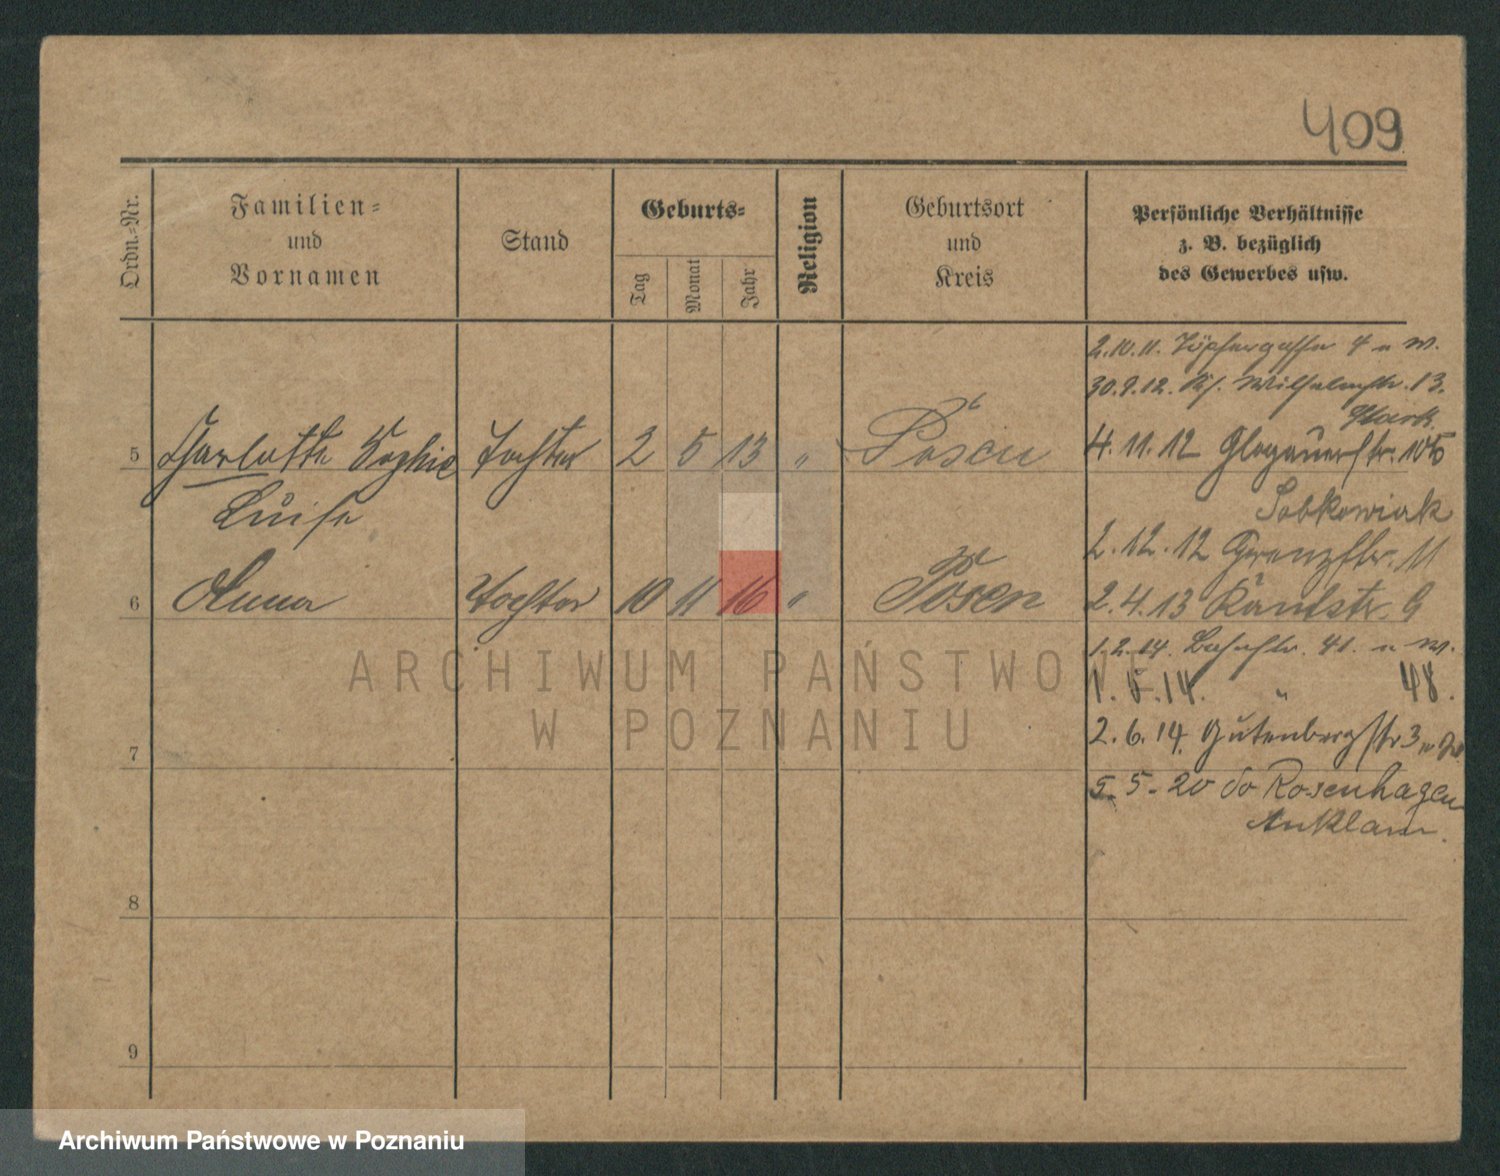 409
Ordn.-Nr.
Familien-
und
Vornamen
Stand
Geburts-
Tag
Monat
Jahr
Religion
Geburtsort
und
Kreis
Persönliche Verhältnisse
z. B. bezüglich
des Gewerbes usw.
2.10.11. Töpfergasse 4 u W.
30.9.12. Wilhelmstr. 13.
4.11.12 Glogauerstr. 105
5 Charlotte Sophie Tochter 2 5 13 " Posen
Luise
Sobkowiak
2.12.12 Grenzstr. 11
6 Anna Tochter 10 11 16 " Posen
2.4.13 Kantstr. 9
1.2.14. 41. u W.
1.5.14. " 48.
2.6.14. Gutenbergstr 3
7
5.5.20 do Rosenhagen
Anklam.
8
9
ARCHIWUM PAŃSTWOWE
W POZNANIU
Archiwum Państwowe w Poznaniu